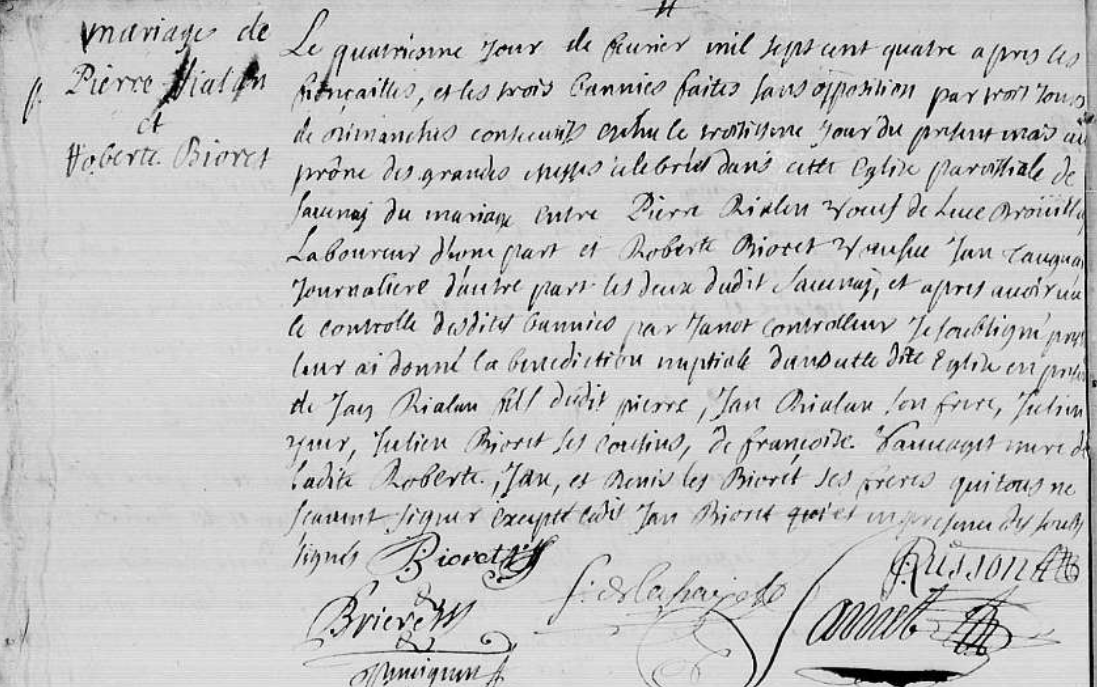 mariage de
Pierre Rialan
et
Roberte Bioret
Le quatriesme Jour de feurier mil sept cent quatre apres les
fiancailles, et les trois bannies faites sans opposition par trois Jours
de dimanches consecutifs le troisiesme Jour du present mois au
prône des grandes messes celebrées dans cette Eglise paroissiale de
du mariage entre Pierre Rialan veuf de Luce
Laboureur d'une part et Roberte Bioret veusue Jan
Journaliere d'autre part les deux dudit et apres auoir vu
le controlle desdites bannies par Janot controlleur Je soubsigné
leur ai donné la benediction nuptiale dans cette dite Eglise en
de Jan Rialan fils dudit pierre, Jan Rialan son frere, Julien
Julien Bioret ses cousins, de françoise mere de
ladite Roberte, Jan, et Denis les Biorét ses freres qui tous ne
scauent signer excepté ledit Jan Bioret qui et en presence des soubs
signés Bioret
Russon
Brierè